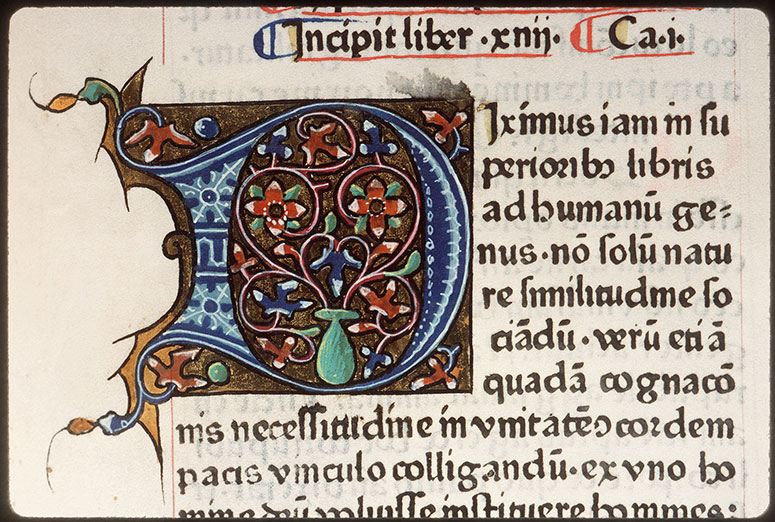 Incipit liber ·xiiij· Ca·i·
Diximus iam in su
perioribꝫ libris
ad humanū ge⸗
nus·nō solū natu
re similitudine so
ciādū·verū etiā
quadā cognacō
nis necessitudine in vnitatē ↄcordem
pacis vinculo colligandū·ex vno ho
mine deū voluisse instituere homines: